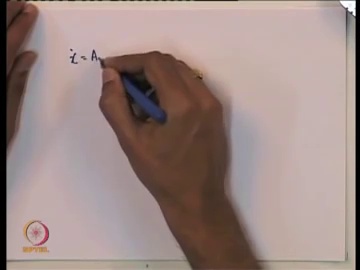 ẋ = A
NPTEL